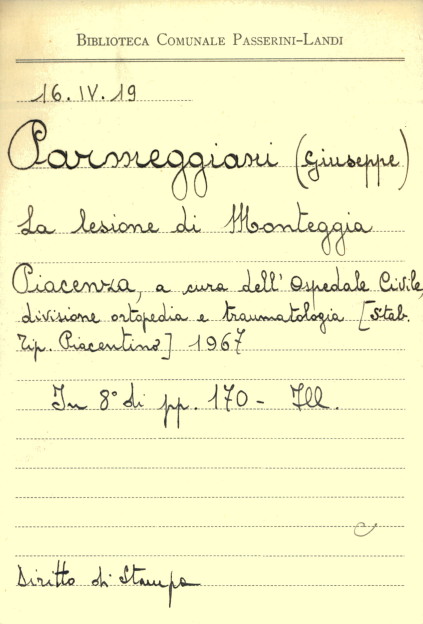 BIBLIOTECA COMUNALE PASSERINI-LANDI
16.IV.19
Parmeggiani (Giuseppe)
La lesione di Monteggia
Piacenza, a cura dell'Ospedale Civile,
divisione ortopedia e traumatologia [Stab.
Tip. Piacentino] 1967
In 8° di pp. 170 - Ill.
C
Diritto di Stampa